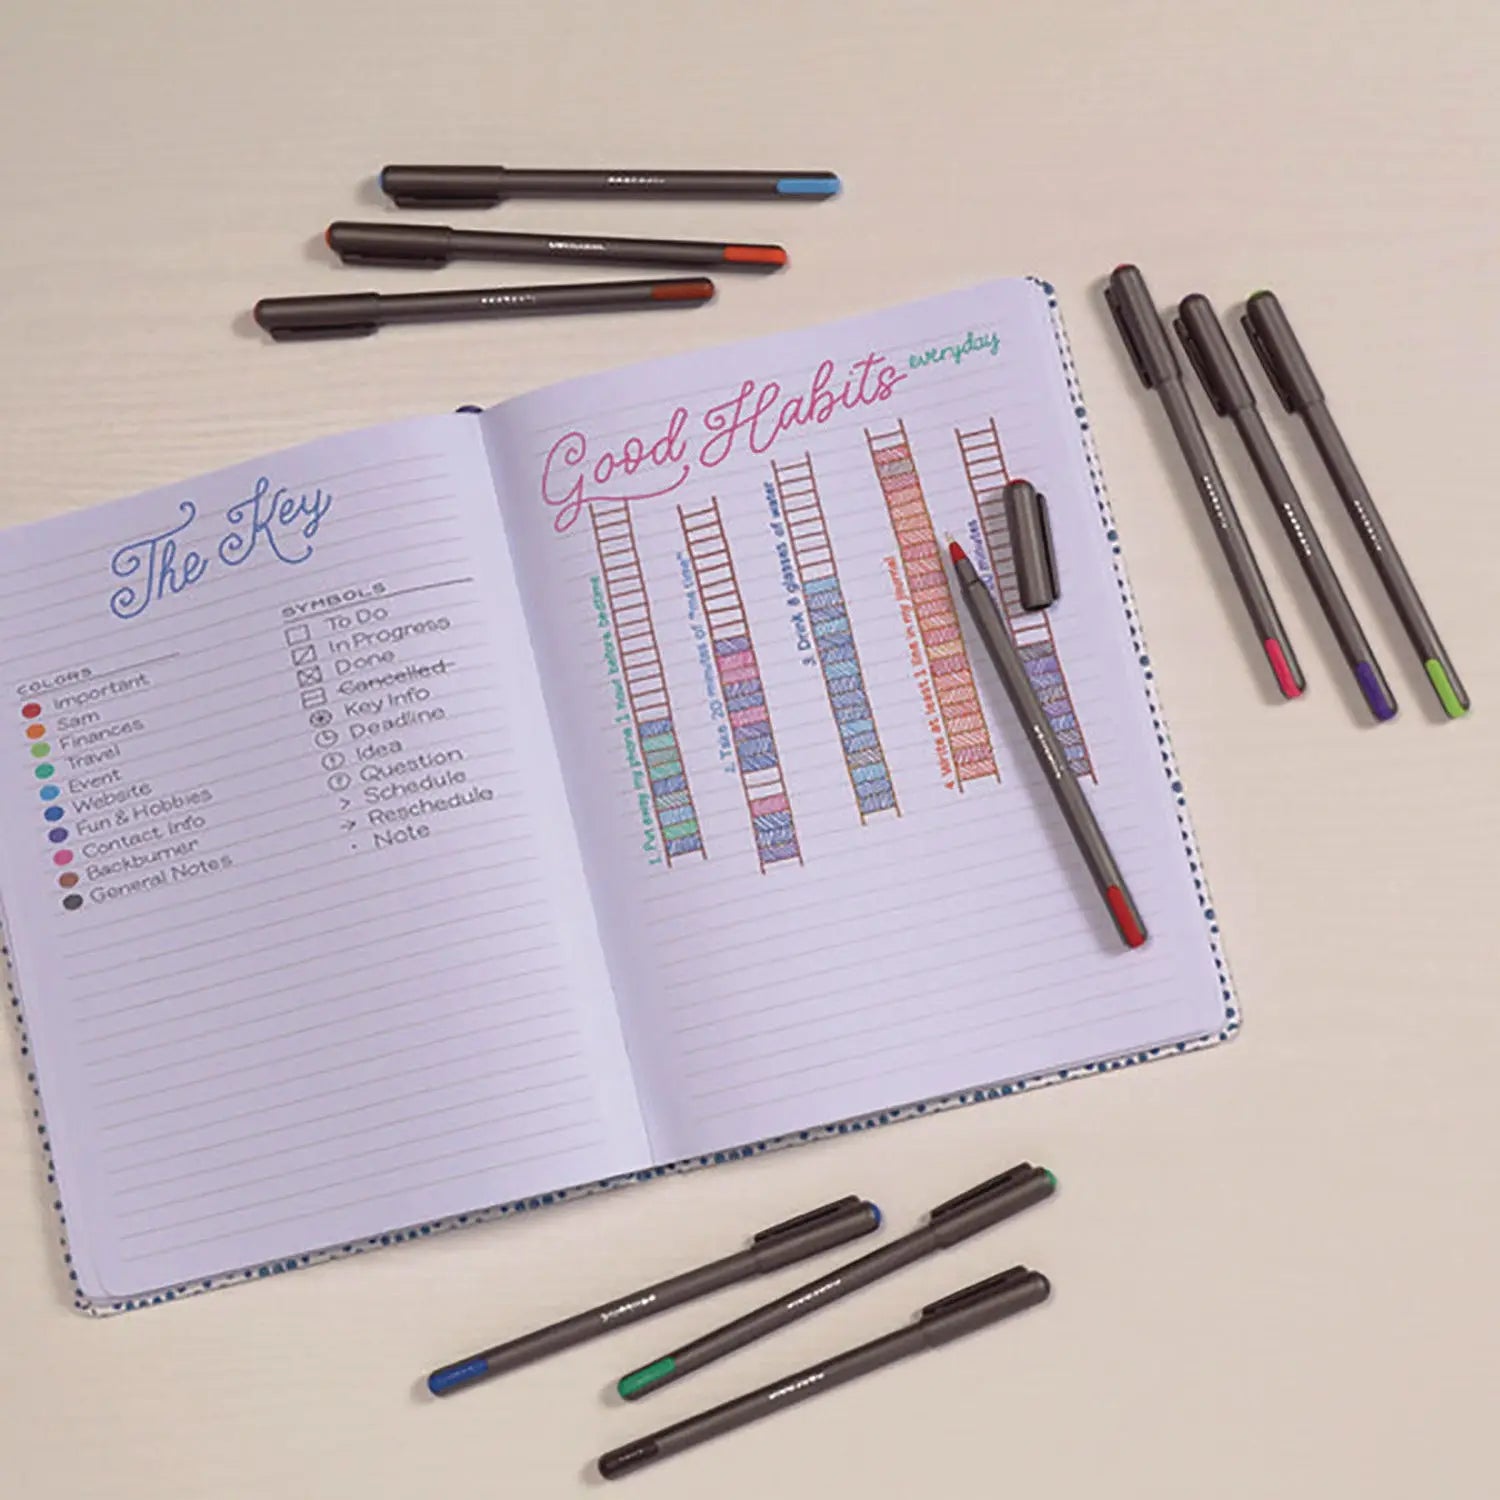 The Key
COLORS
Important
Sam
Finances
Travel
Event
Website
Fun & Hobbies
Contact Info
Backburner
General Notes
SYMBOLS
To Do
In Progress
Done
Cancelled
Key Info
Deadline
Idea
Question
Schedule
Reschedule
Note
Good Habits everyday
1. Put away my phone 1 hour before bedtime
2. Take 20 minutes of "me time"
3. Drink 8 glasses of water
4. Write at least 1 line in my journal
minutes